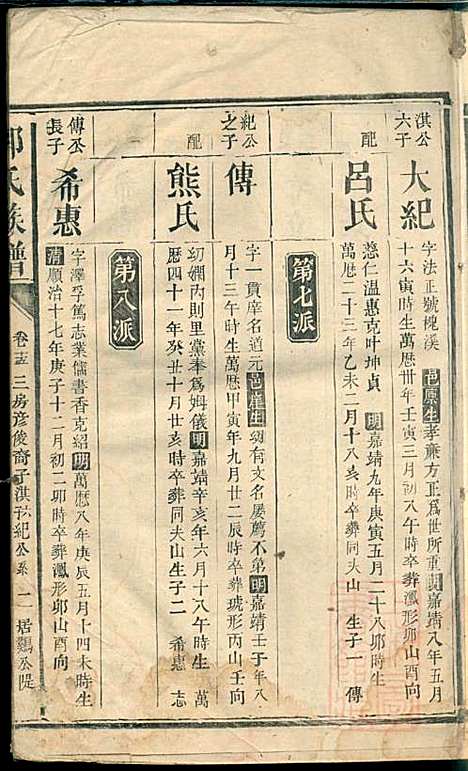 淇公
六子
大紀
字法正號槐溪 邑廩生 孝亷方正爲世所重 明嘉靖八年五月
十六寅時生萬曆卅年壬寅三月初八卯時卒葬瀊形卯山酉向
配
呂氏
慈仁溫惠克叶坤貞 明嘉靖九年庚寅五月二十八卯時生
萬曆二十三年乙未二月十八亥時卒葬同夫山 生子一 傳
第七派
紀公
之子
傳
字一貫庠名道元 邑增生 幼有文名屢薦不第 明嘉靖壬子年八
月十三午時生萬曆甲寅年九月廿二辰時卒葬琥形丙山壬向
配
熊氏
幼嫻內則里黨奉爲姆儀 明嘉靖辛亥年六月十八午時生 萬
曆四十一年癸丑十月廿亥時卒葬同夫山生子二 希惠 志
第八派
傳公
長子
希惠
字澤孚篤志業儒書香克紹 明萬曆八年庚辰五月十四未時生
清順治十七年庚子十二月初二卯時卒葬瀊形卯山酉向
氏族譜
卷 三房彥俊裔子淇六紀公系 二 居鸛公隄